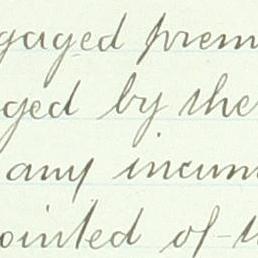 gaged prem
ged by the
any incum
ointed of t